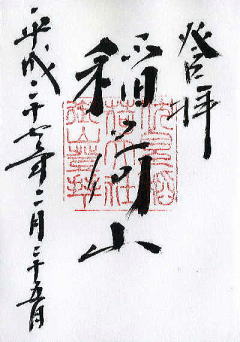 登拝
稲荷山
平成二十七年二月二十五日